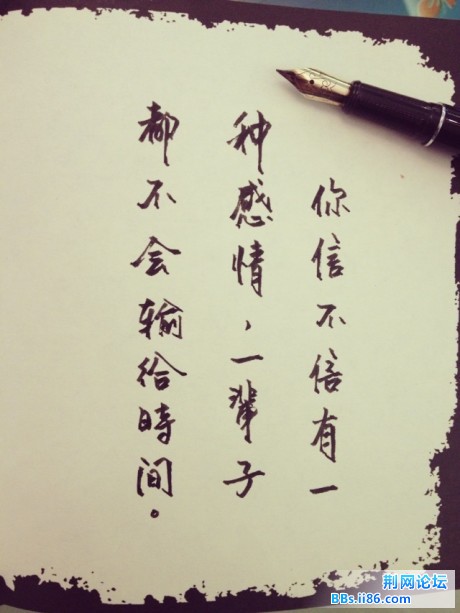 你信不信有一
种感情，一辈子
都不会输给時间。
荆网论坛
BBs.ii86.com